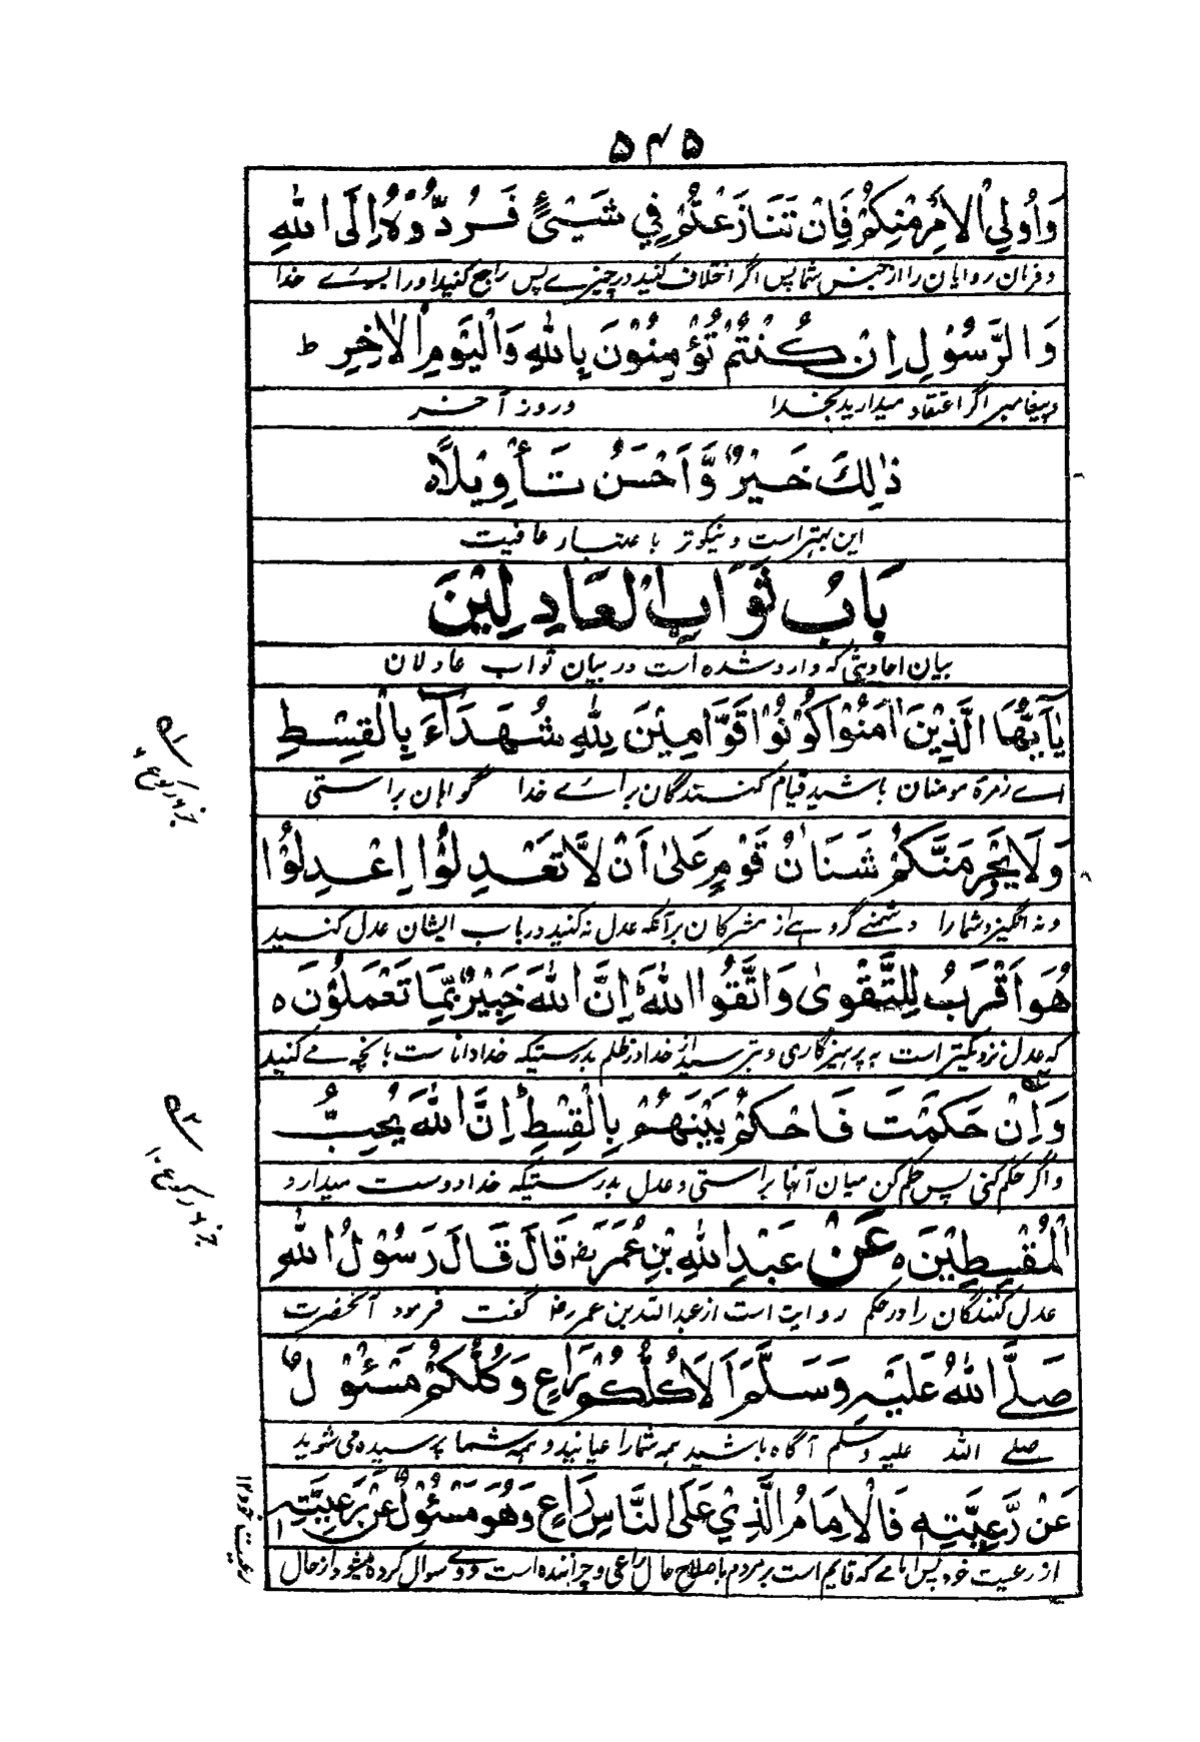 ۵۴۵
وَاُولِي الْاَمْرِ مِنْكُمْ فَاِنْ تَنَازَعْتُمْ فِي شَيْئٍ فَرُدُّوْهُ اِلَى اللهِ
و فرمان روایان را از جنس شما پس اگر اختلاف کنید در چیزے پس راجع کنید او را بسوے خدا
وَالرَّسُوْلِ اِنْ كُنْتُمْ تُؤْمِنُوْنَ بِاللهِ وَالْيَوْمِ الْاٰخِرِ ط
و پیغامبر اگر اعتقاد میدارید بخدا و روز آخر
ذٰلِكَ خَيْرٌ وَّاَحْسَنُ تَأْوِيْلًاه
این بهتر است و نیکوتر با عتبار عافیت
بَابُ ثَوَابِ الْعَادِلِيْنَ
بیان احادیثی که وارد شده است در بیان ثواب عادلان
يٰاَيُّهَا الَّذِيْنَ اٰمَنُوْا كُوْنُوْا قَوَّامِيْنَ لِلهِ شُهَدَآءَ بِالْقِسْطِ
اے زمرۀ مومنان باشید قیام کنندگان براے خدا گواہان براستی
وَلَا يَجْرِمَنَّكُمْ شَنَاٰنُ قَوْمٍ عَلٰى اَنْ لَّا تَعْدِلُوْا اِعْدِلُوْا
و نه انگیزد شما را دشمنے گروہے از مشرکان برآنکه عدل نه کنید در باب ایشان عدل کنید
هُوَ اَقْرَبُ لِلتَّقْوٰى وَاتَّقُوا اللهَ اِنَّ اللهَ خَبِيْرٌ بِمَا تَعْمَلُوْنَ ه
که عدل نزدیکتر است به پرہیزگاری و بترسید از خدا در ظلم بدرستیکه خدا دانا ست بانچه مے کنید
وَاِنْ حَكَمْتَ فَاحْكُمْ بَيْنَهُمْ بِالْقِسْطِ اِنَّ اللهَ يُحِبُّ
و اگر حکم کنی پس حکم کن میان آنها براستی و عدل بدرستیکه خدا دوست میدارد
الْمُقْسِطِيْنَ ه عَنْ عَبْدِ اللهِ بْنِ عُمَرَ رض قَالَ قَالَ رَسُوْلُ اللهِ
عدل کنندگان را در حکم روایت است از عبدالله بن عمر رض گفت فرمود آنحضرت
صَلَّے اللهُ عَلَيْهِ وَسَلَّمَ اَلَا كُلُّكُمْ رَاعٍ وَكُلُّكُمْ مَسْئُوْلٌ
صلے الله علیه وسلم آگاه باشید ہمہ شما راعیانید و ہمہ شما پرسیده می شوید
عَنْ رَّعِيَّتِهِ فَالْاِمَامُ الَّذِيْ عَلَى النَّاسِ رَاعٍ وَهُوَ مَسْئُوْلٌ عَنْ رَعِيَّتِهِ
از رعیت خود پس امامے که قایم است بر مردم باصلاح حال راعی و چراننده است و وے سوال کرده میشود از حال
رعیت خود ۱۲